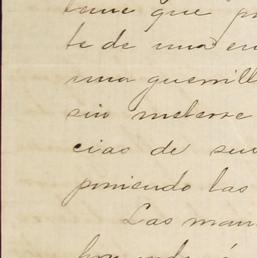 que p
te de una en
una guerrill
sin meterse
cias de su
poniendo las
Las man